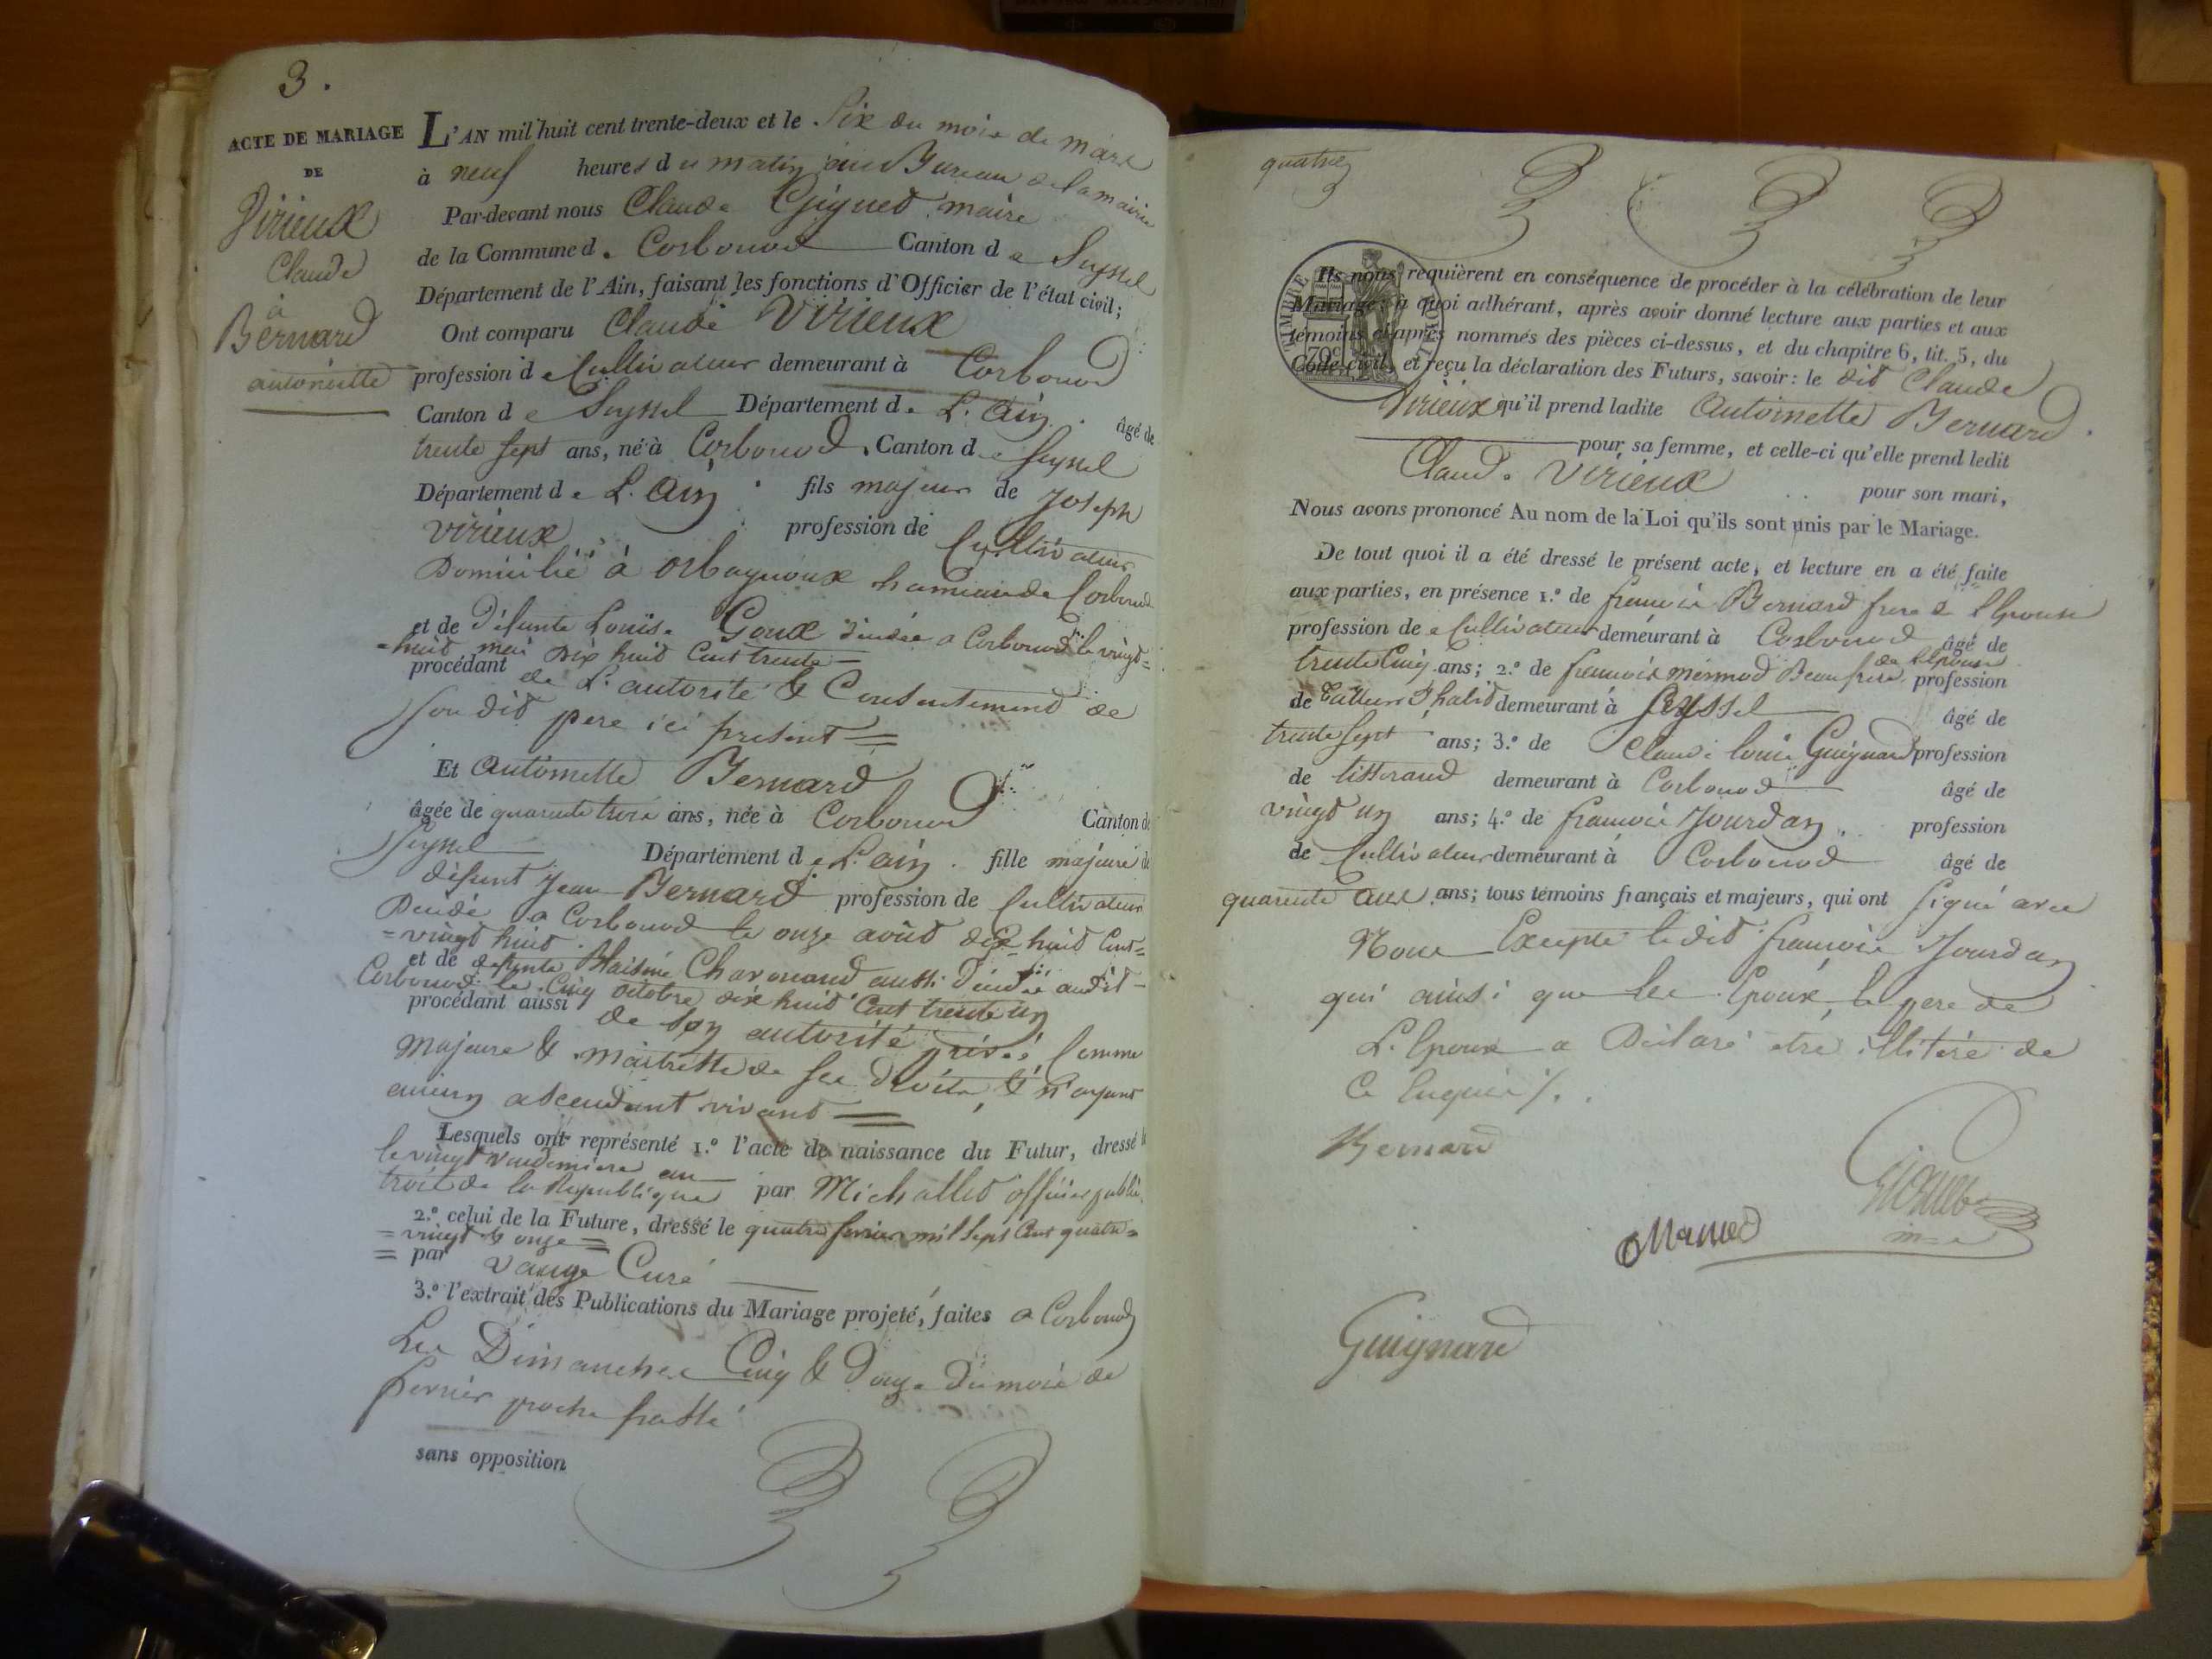 3.
ACTE DE MARIAGE
DE
Virieux
Claude
à
Bernard
antoinette
L'AN mil huit cent trente-deux et le Six du mois de mars
à neuf heures du matin au Bureau de la mairie
Par-devant nous Claude Gignet maire
de la Commune de Corbonod Canton de Seyssel
Département de l'Ain, faisant les fonctions d'Officier de l'état civil;
Ont comparu Claude Virieux
profession de Cultivateur demeurant à Corbonod
Canton de Seyssel Département de L'Ain. âgé de
trente sept ans, né à Corbonod Canton de Seyssel
Département de L'Ain fils majeur de Joseph
Virieux profession de Cultivateur
Domicilié à Orbagnoux hameau de Corbonod
et de Défunte Louise Goux Décédée a Corbonod le vingt=
=huit mai Dix huit Cent trente
procédant de L'autorité & Consentement de
son dit pere ici present
Et Antoinette Bernard
âgée de quarente trois ans, née à Corbonod Canton de
Seyssel Département de L'ain. fille majeure de
défunt Jean Bernard profession de Cultivateur
Décédé a Corbonod le onze août dix huit Cent=
=vingt huit
et de defunte Charonand aussi Décédée audit
Corbonod le Cinq octobre dix huit Cent trente un
procédant aussi de son autorité privée Comme
majeure & maitresse de ses droits, & n'ayant
aucun ascendant vivant
Lesquels ont représenté 1.º l'acte de naissance du Futur, dressé le
le vingt vendemiaire an
trois de la Republique par Michallet officier public
2.º celui de la Future, dressé le quatre fevrier mil sept Cent quatre=
=vingt & onze=
= par Vauge Curé
3.º l'extrait des Publications du Mariage projeté, faites a Corbonod
Les Dimanches Cinq & Douze du mois de
fevrier proche passé
sans opposition
quatre
TIMBRE ROYAL
70c
Ils nous requièrent en conséquence de procéder à la célébration de leur
Mariage; à quoi adhérant, après avoir donné lecture aux parties et aux
témoins ci-après nommés des pièces ci-dessus, et du chapitre 6, tit. 5, du
Code civil, et reçu la déclaration des Futurs, savoir: le dit Claude
Virieux qu'il prend ladite Antoinette Bernard
pour sa femme, et celle-ci qu'elle prend ledit
Claude Virieux pour son mari,
Nous avons prononcé Au nom de la Loi qu'ils sont unis par le Mariage.
De tout quoi il a été dressé le présent acte, et lecture en a été faite
aux parties, en présence 1.º de francois Bernard frere de L'Epouse
profession de Cultivateur demeurant à Corbonod âgé de
trente Cinq ans; 2.º de francois mermod Beau frere de L'Epouse profession
de tailleur d'habit demeurant à Seyssel âgé de
trente sept ans; 3.º de Claude louis Guignard profession
de tisserand demeurant à Corbonod âgé de
vingt un ans; 4.º de francois Jourdan profession
de Cultivateur demeurant à Corbonod âgé de
quarente ans; tous témoins français et majeurs, qui ont signé avec
Nous Excepté le dit francois Jourdan
qui ainsi que les Epoux, le pere de
L'Epoux a Déclaré etre illiteré de
Ce Enquis/.
Bernard
Gignet
Guignard